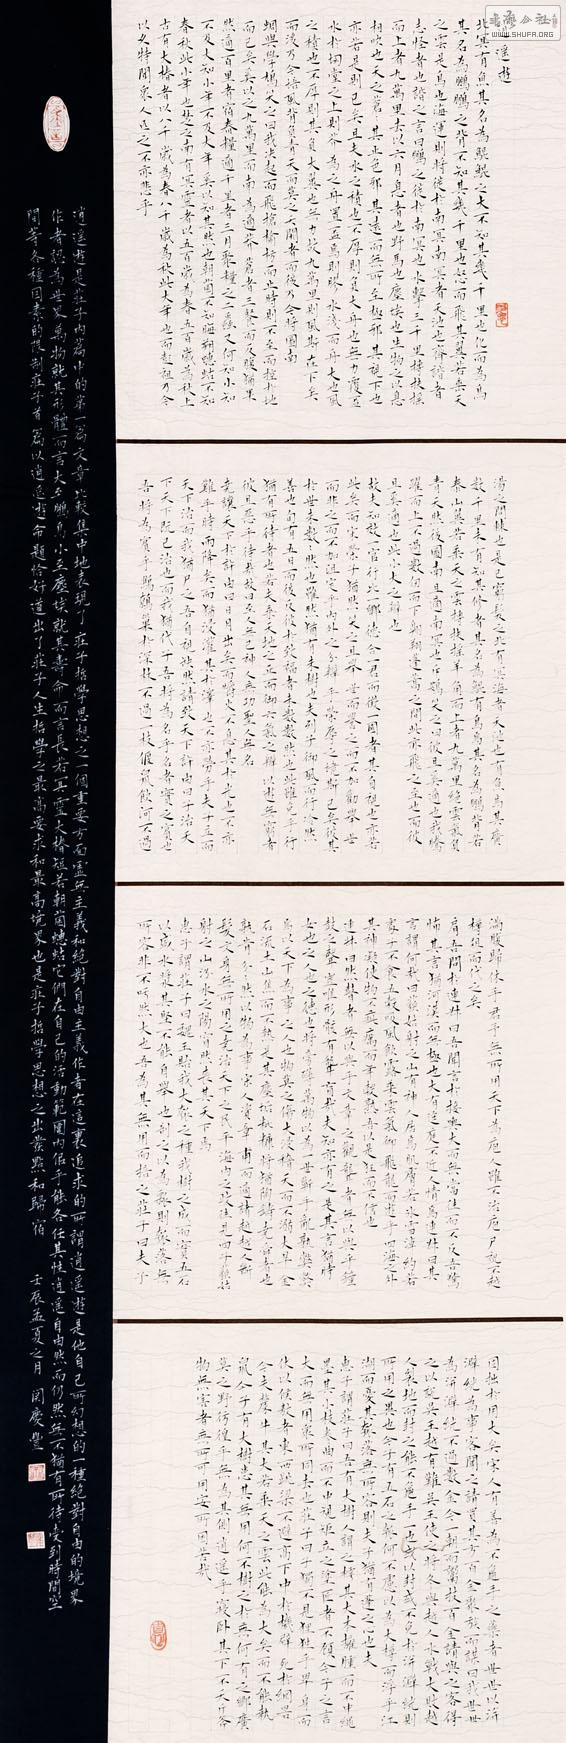 遙遊
北冥有魚其名為鯤鯤之大不知其幾千里也化而為鳥
其名為鵬鵬之背不知其幾千里也怒而飛其翼若垂天
之雲是鳥也海運則將徙於南冥南冥者天池也齊諧者
志怪者也諧之言曰鵬之徙於南冥也水擊三千里摶扶搖
而上者九萬里去以六月息者也野馬也塵埃也生物之以息
相吹也天之蒼蒼其正色邪其遠而無所至極邪其視下也
亦若是則已矣且夫水之積也不厚則其負大舟也無力覆杯
水於坳堂之上則芥為之舟置杯焉則膠水淺而舟大也風
之積也不厚則其負大翼也無力故九萬里則風斯在下矣
而後乃今培風背負青天而莫之夭閼者而後乃今將圖南
蜩與學鳩笑之曰我決起而飛搶榆枋而止時則不至而控於地
而已矣奚以之九萬里而南為適莽蒼者三餐而反腹猶果
然適百里者宿舂糧適千里者三月聚糧之二蟲又何知小知
不及大知小年不及大年奚以知其然也朝菌不知晦朔蟪蛄不知
春秋此小年也楚之南有冥靈者以五百歲為春五百歲為秋上
古有大椿者以八千歲為春八千歲為秋此大年也而彭祖乃今
以久特聞眾人匹之不亦悲乎
湯之問棘也是已窮髮之北有冥海者天池也有魚焉其廣
數千里未有知其修者其名為鯤有鳥焉其名為鵬背若
泰山翼若垂天之雲摶扶搖羊角而上者九萬里絕雲氣負
青天然後圖南且適南冥也斥鴳笑之曰彼且奚適也我騰
躍而上不過數仞而下翱翔蓬蒿之間此亦飛之至也而彼
且奚適也此小大之辯也
故夫知效一官行比一鄉德合一君而徵一國者其自視也亦若
此矣而宋榮子猶然笑之且舉世而譽之而不加勸舉世
而非之而不加沮定乎內外之分辯乎榮辱之境斯已矣彼其
於世未數數然也雖然猶有未樹也夫列子御風而行泠然
善也旬有五日而後反彼於致福者未數數然也此雖免乎行
猶有所待者也若夫乘天地之正而御六氣之辯以遊無窮者
彼且惡乎待哉故曰至人無己神人無功聖人無名
堯讓天下於許由曰日月出矣而爝火不息其於光也不亦
難乎時雨降矣而猶浸灌其於澤也不亦勞乎夫子立而
天下治而我猶尸之吾自視缺然請致天下許由曰子治天
下天下既已治也而我猶代子吾將為名乎名者實之賓也
吾將為賓乎鷦鷯巢於深林不過一枝偃鼠飲河不過
滿腹歸休乎君予無所用天下為庖人雖不治庖尸祝不越
樽俎而代之矣
肩吾問於連叔曰吾聞言於接輿大而無當往而不反吾驚
怖其言猶河漢而無極也大有逕庭不近人情焉連叔曰其
言謂何哉曰藐姑射之山有神人居焉肌膚若冰雪淖約若
處子不食五穀吸風飲露乘雲氣御飛龍而遊乎四海之外
其神凝使物不疵癘而年穀熟吾以是狂而不信也
連叔曰然瞽者無以與乎文章之觀聾者無以與乎鐘
鼓之聲豈唯形骸有聾盲哉夫知亦有之是其言也猶時
女也之人也之德也將旁礡萬物以為一世蘄乎亂孰弊弊
焉以天下為事之人也物莫之傷大浸稽天而不溺大旱金
石流土山焦而不熱是其塵垢秕糠將猶陶鑄堯舜者也
孰肯分分然以物為事宋人資章甫而適諸越越人斷
髮文身無所用之堯治天下之民平海內之政往見四子藐姑
射之山汾水之陽窅然喪其天下焉
惠子謂莊子曰魏王貽我大瓠之種我樹之成而實五石
以盛水漿其堅不能自舉也剖之以為瓢則瓠落無
所容非不呺然大也吾為其無用而掊之莊子曰夫子
固拙於用大矣宋人有善為不龜手之藥者世世以洴
澼絖為事客聞之請買其方百金聚族而謀曰我世世
為洴澼絖不過數金今一朝而鬻技百金請與之客得
之以說吳王越有難吳王使之將冬與越人水戰大敗越
人裂地而封之能不龜手一也或以封或不免於洴澼絖則
所用之異也今子有五石之瓠何不慮以為大樽而浮乎江
湖而憂其瓠落無所容則夫子猶有蓬之心也夫
惠子謂莊子曰吾有大樹人謂之樗其大本擁腫而不中繩
墨其小枝卷曲而不中規矩立之塗匠者不顧今子之言
大而無用眾所同去也莊子曰子獨不見狸狌乎卑身而
伏以候敖者東西跳梁不避高下中於機辟死於網罟
今夫斄牛其大若垂天之雲此能為大矣而不能執
鼠今子有大樹患其無用何不樹之於無何有之鄉廣
莫之野彷徨乎無為其側逍遙乎寢臥其下不夭斤斧
物無害者無所可用安所困苦哉
逍遙遊是莊子內篇中的第一篇文章比較集中地表現了莊子哲學思想之一個重要方面虛無主義和絕對自由主義作者在這裏追求的所謂逍遙遊是他自己所幻想的一種絕對自由的境界
作者認為世界萬物就其形體而言大至鵬鳥小至塵埃就其壽命而言長若冥靈大椿短若朝菌蟪蛄它們在自己的活動範圍內似乎能各任其性逍遙自由然而仍然無不猶有所待受到時間空
間等各種因素的限制莊子首篇以逍遙遊命題恰好道出了莊子人生哲學之最高要求和最高境界也是莊子哲學思想之出發點和歸宿 壬辰孟夏之月 関慶豐
書法公社
WWW.SHUFA.ORG